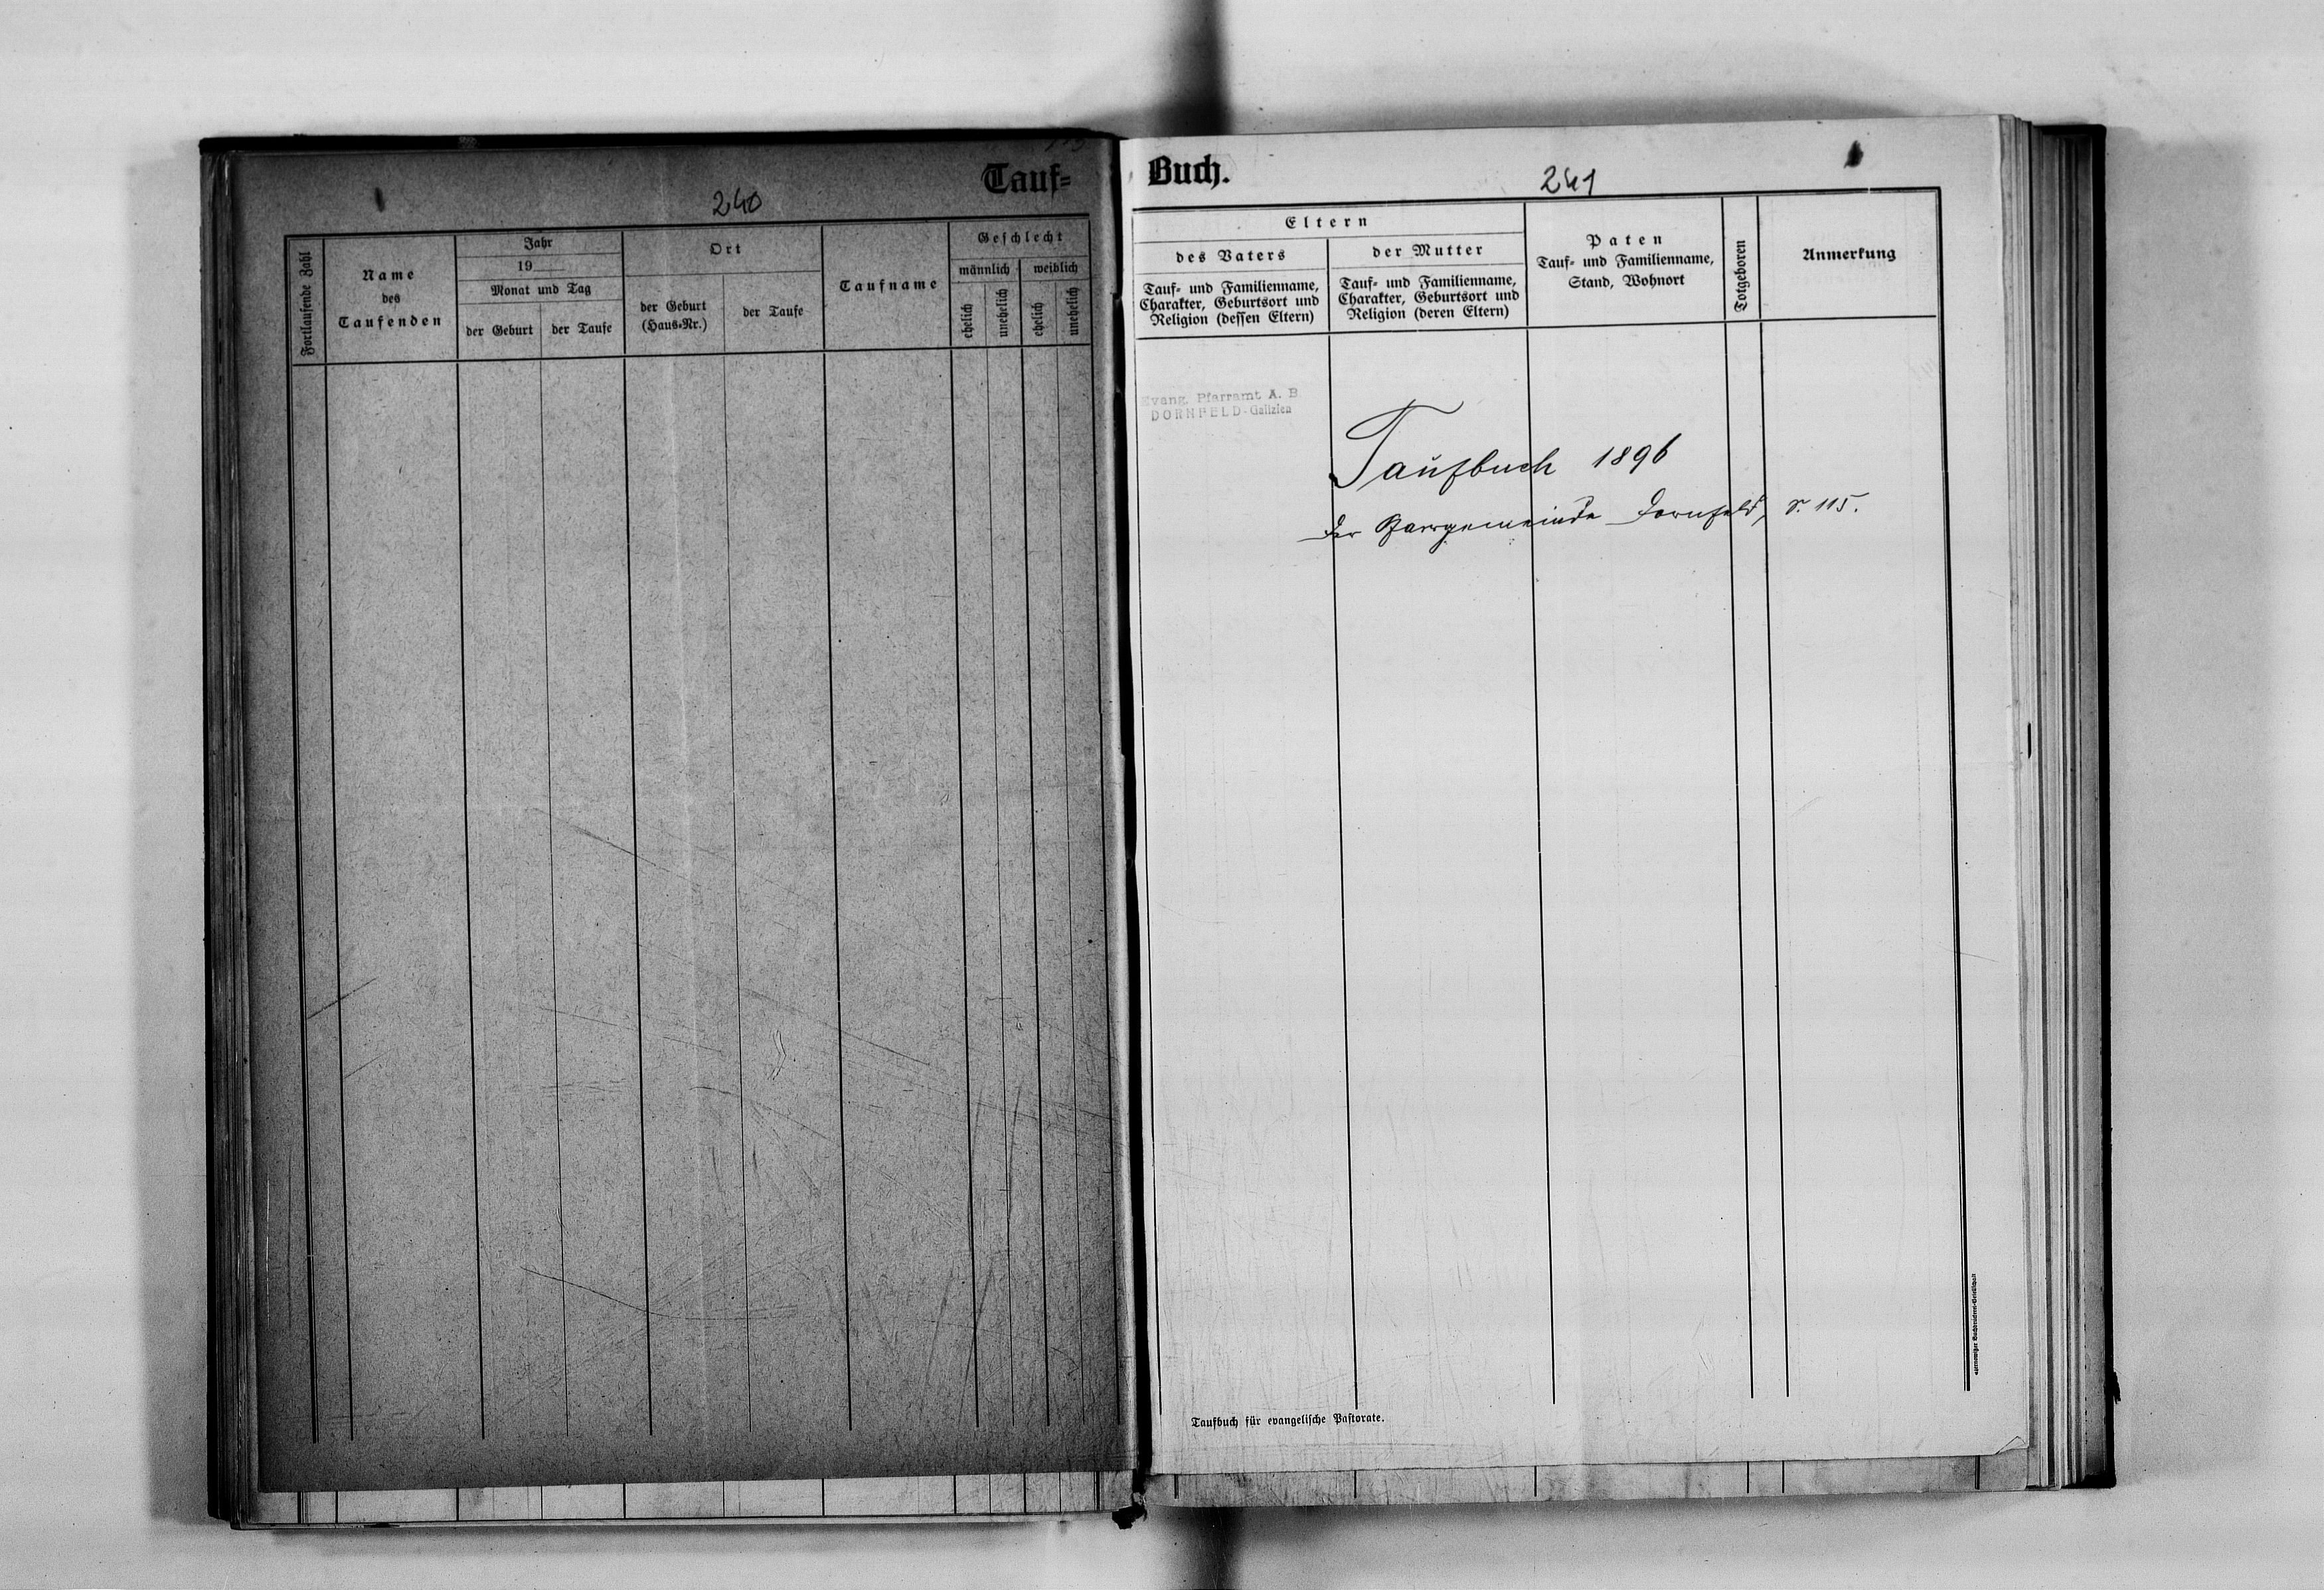 Tauf=
240
Fortlaufende Zahl
Name
des
Taufenden
Jahr
19
Monat und Tag
der Geburt
der Taufe
Ort
der Geburt
(Haus-Nr.)
der Taufe
Taufname
Geschlecht
männlich
weiblich
ehelich
unehelich
ehelich
unehelich
Buch.
241
Eltern
des Vaters
Tauf- und Familienname,
Charakter, Geburtsort und
Religion (dessen Eltern)
der Mutter
Tauf- und Familienname,
Charakter, Geburtsort und
Religion (deren Eltern)
Paten
Tauf- und Familienname,
Stand, Wohnort
Totgeboren
Anmerkung
Evang. Pfarramt A. B.
DORNFELD-Galizien
Taufbuch 1896
der Pfarrgemeinde Dornfeld, S. 115.
Taufbuch für evangelische Pastorate.